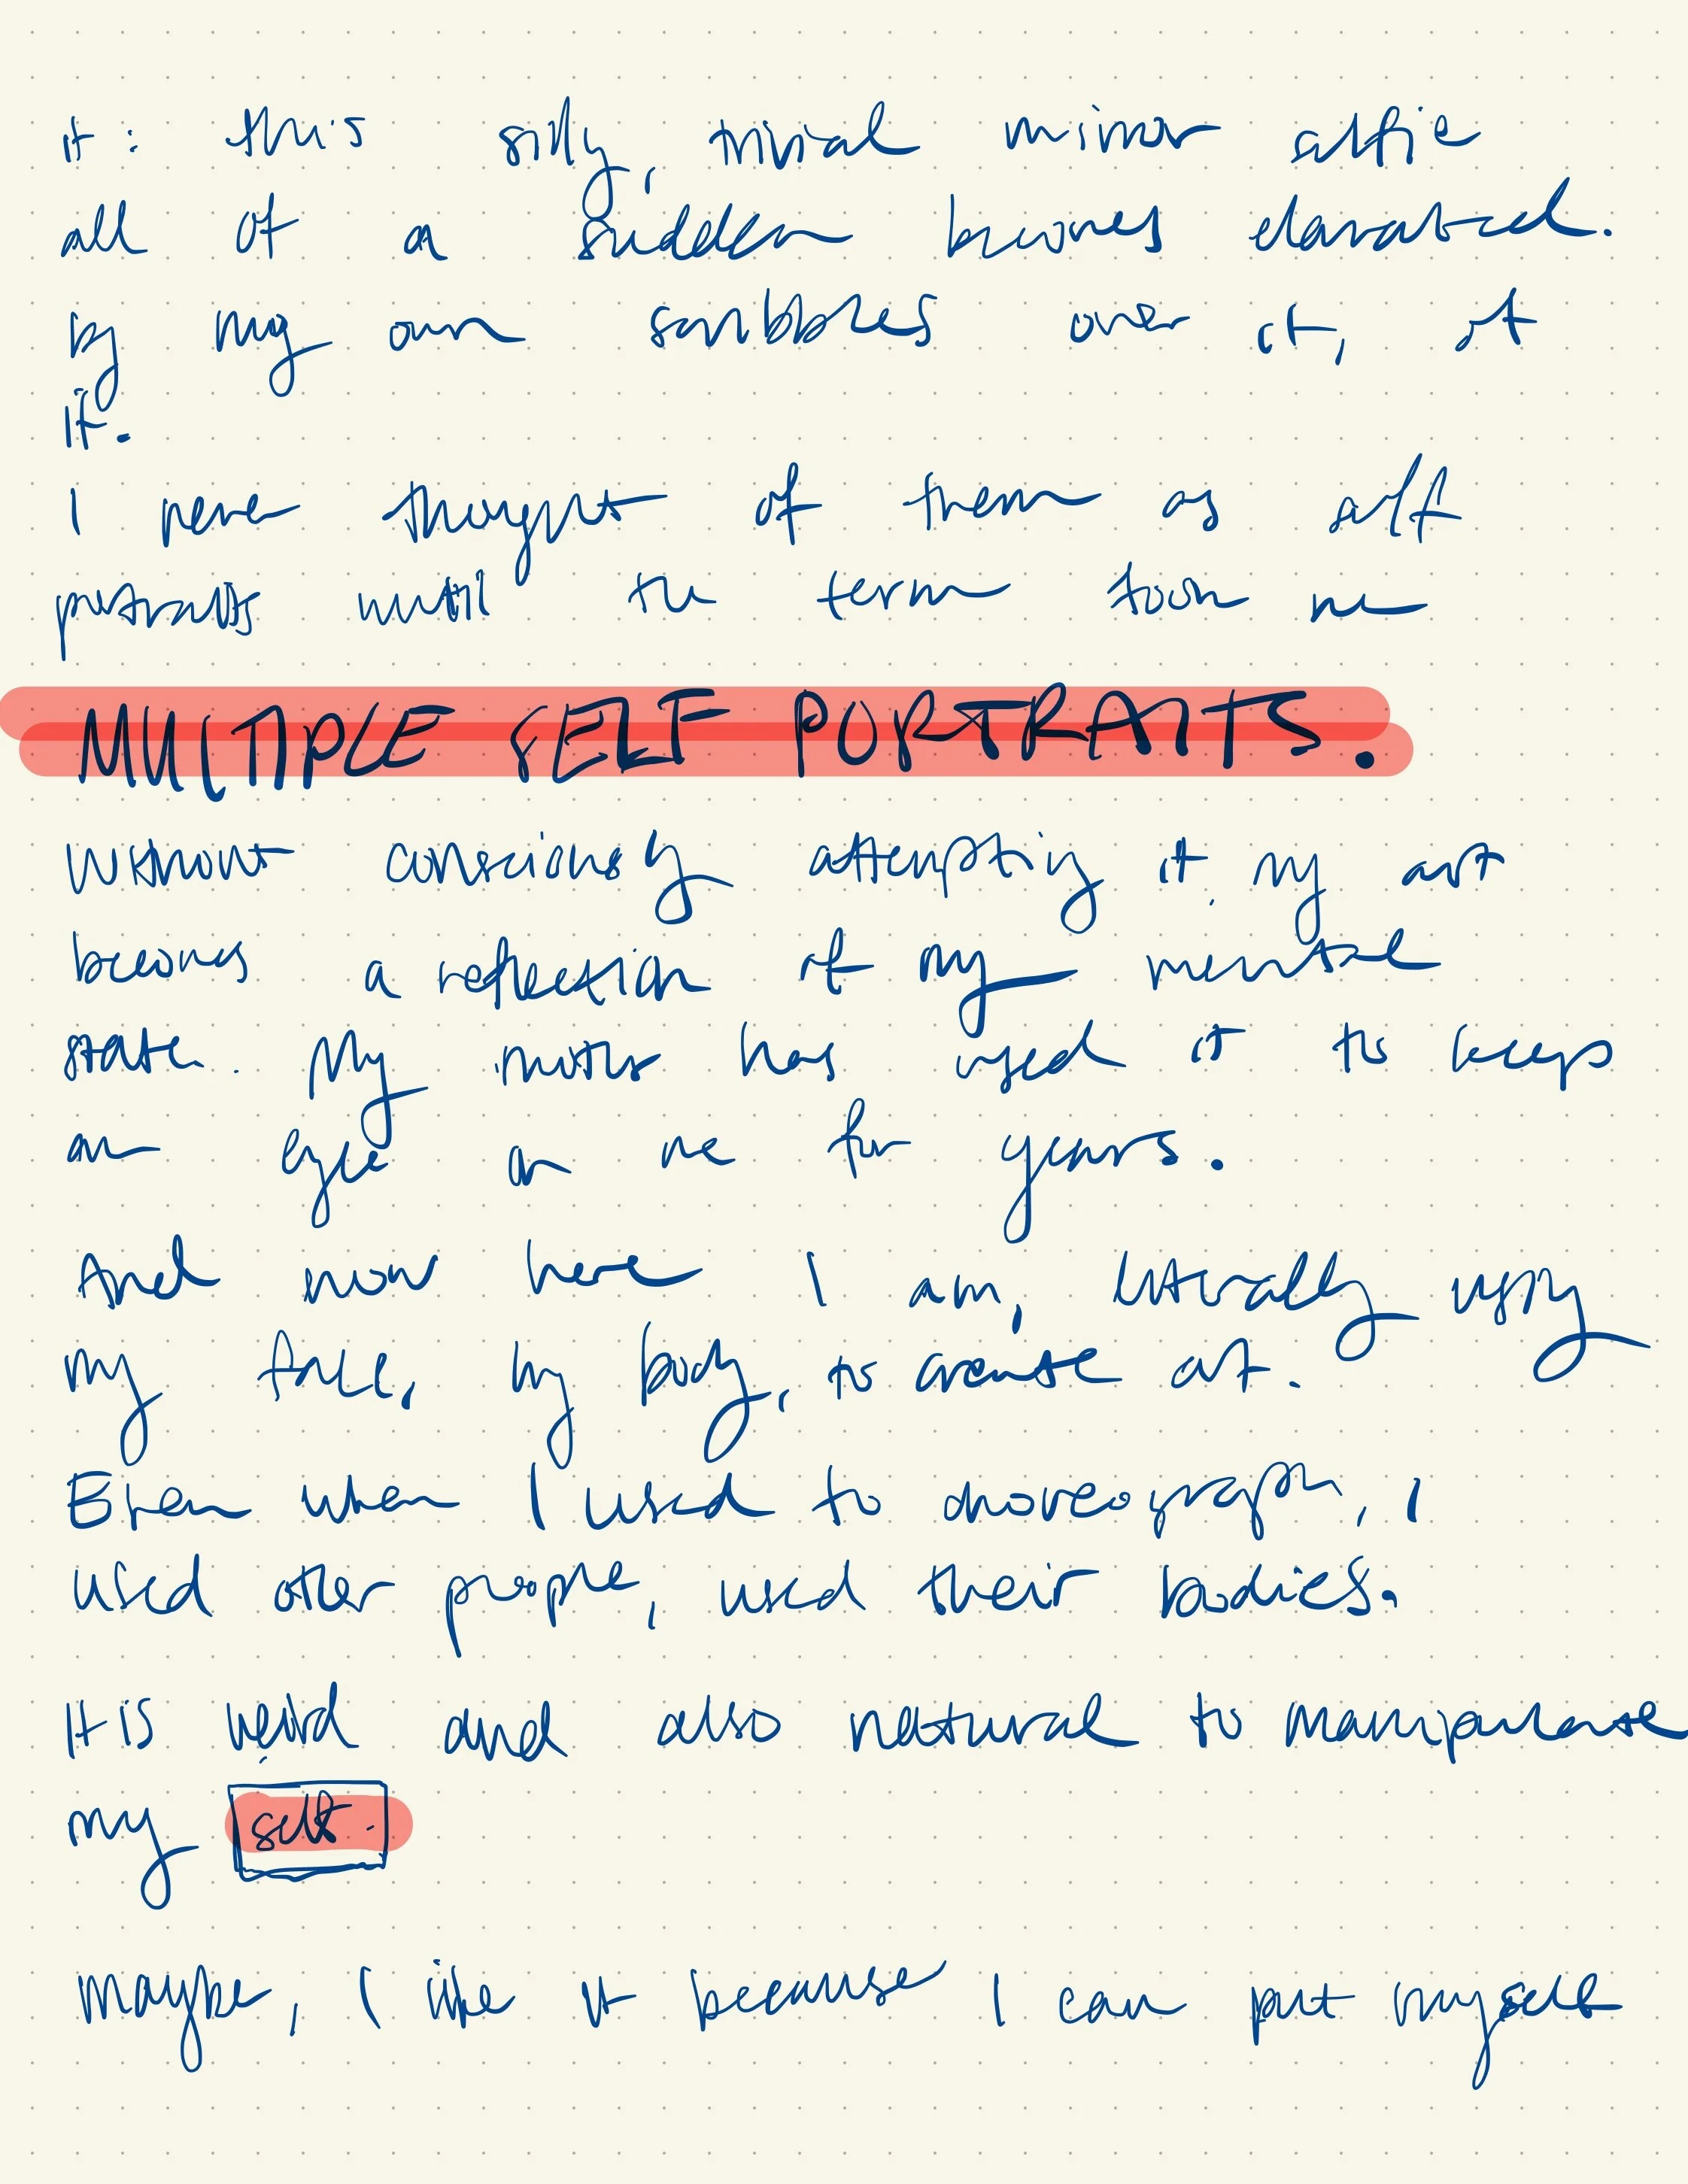 it: this silly, trivial minor selfie
all of a sudden becomes elevated.
by my own scribbles over it, of
it.
I never thought of them as self
portraits until the term took me
MULTIPLE SELF PORTRAITS.
Without consciously attempting it, my art
becomes a reflection of my mental
state. My mother has used it to keep
an eye on me for years.
And now here I am, literally using
my face, my body, to create art.
Even when I used to choreograph, I
used other people, used their bodies.
It is weird and also natural to manipulate
my self.
maybe, I like it because I can put myself